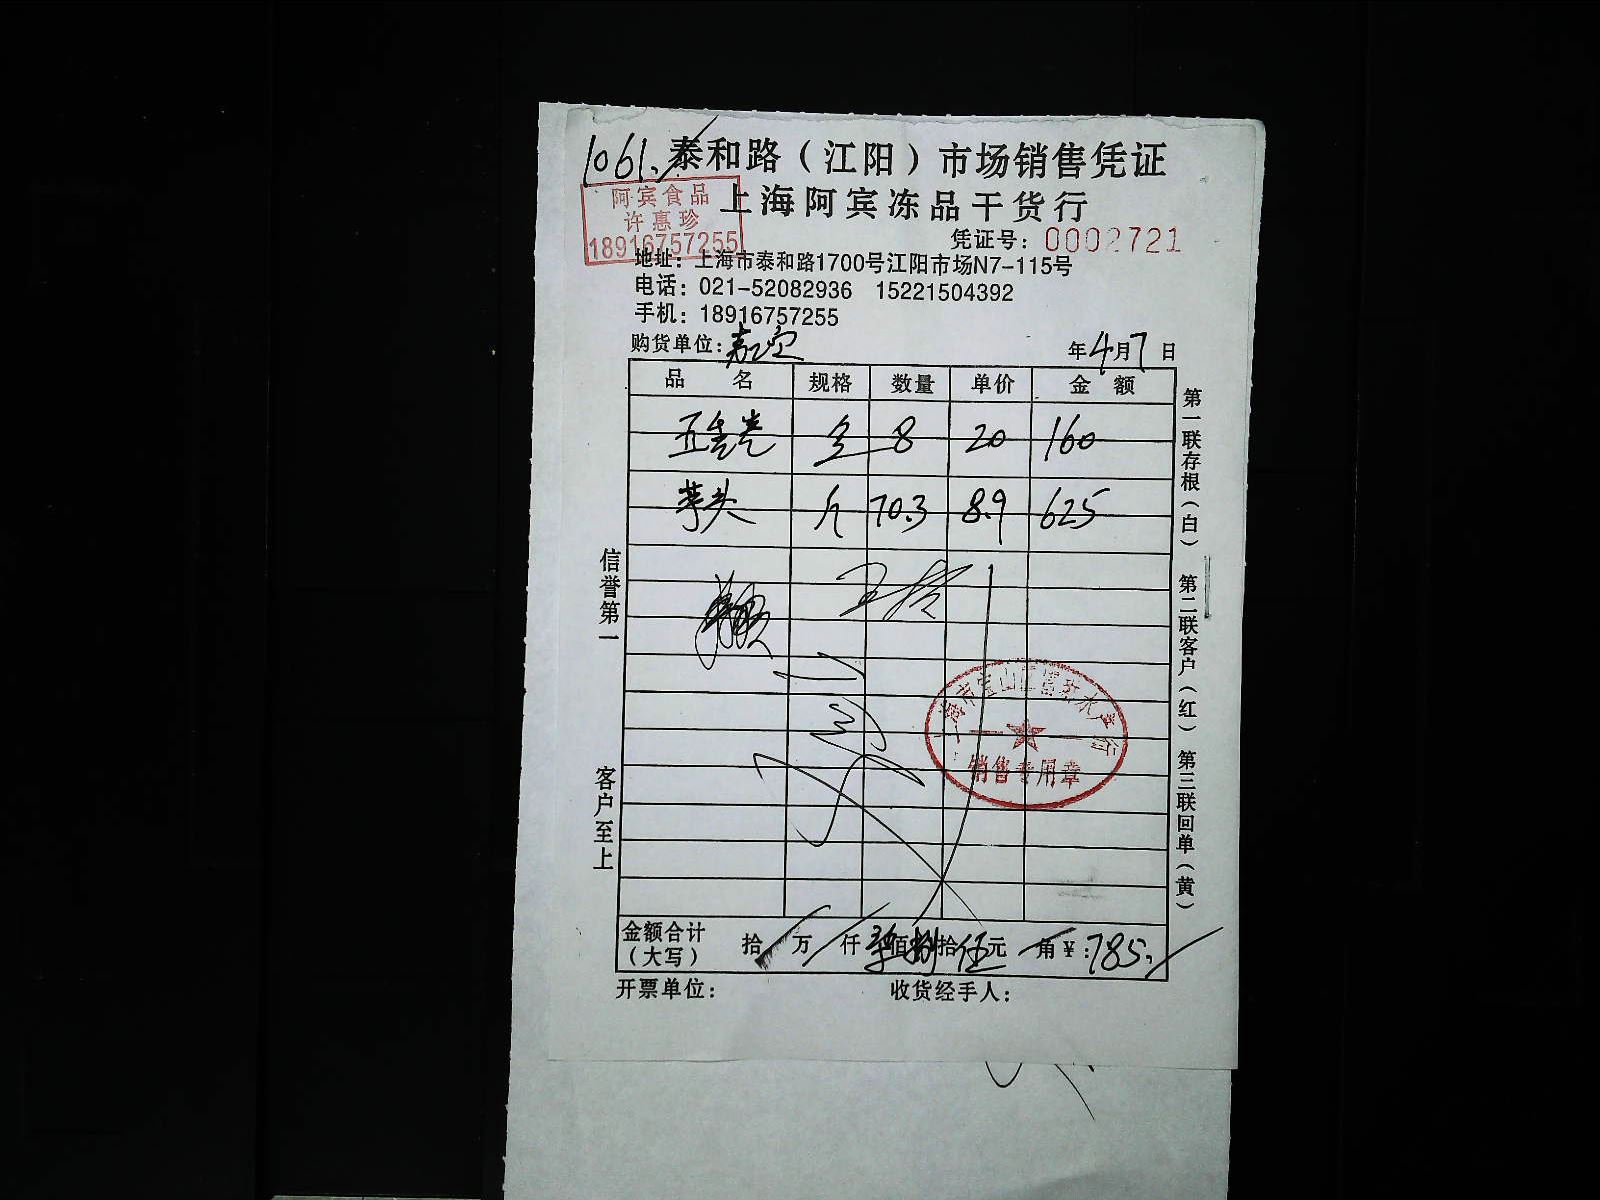 1061.
泰和路（江阳）市场销售凭证
上海阿宾冻品干货行
阿宾食品
许惠珍
18916757255
凭证号：0002721
地址：上海市泰和路1700号江阳市场N7-115号
电话：021-52082936 15221504392
手机：18916757255
购货单位： 年4月7日
品名 规格 数量 单价 金额
8 20 160
芋头 斤 70.3 8.9 625
信誉第一
客户至上
第一联存根（白） 第二联客户（红） 第三联回单（黄）
销售专用章
金额合计（大写） 拾 万 仟 柒佰捌拾伍元 角¥：785.
开票单位： 收货经手人：